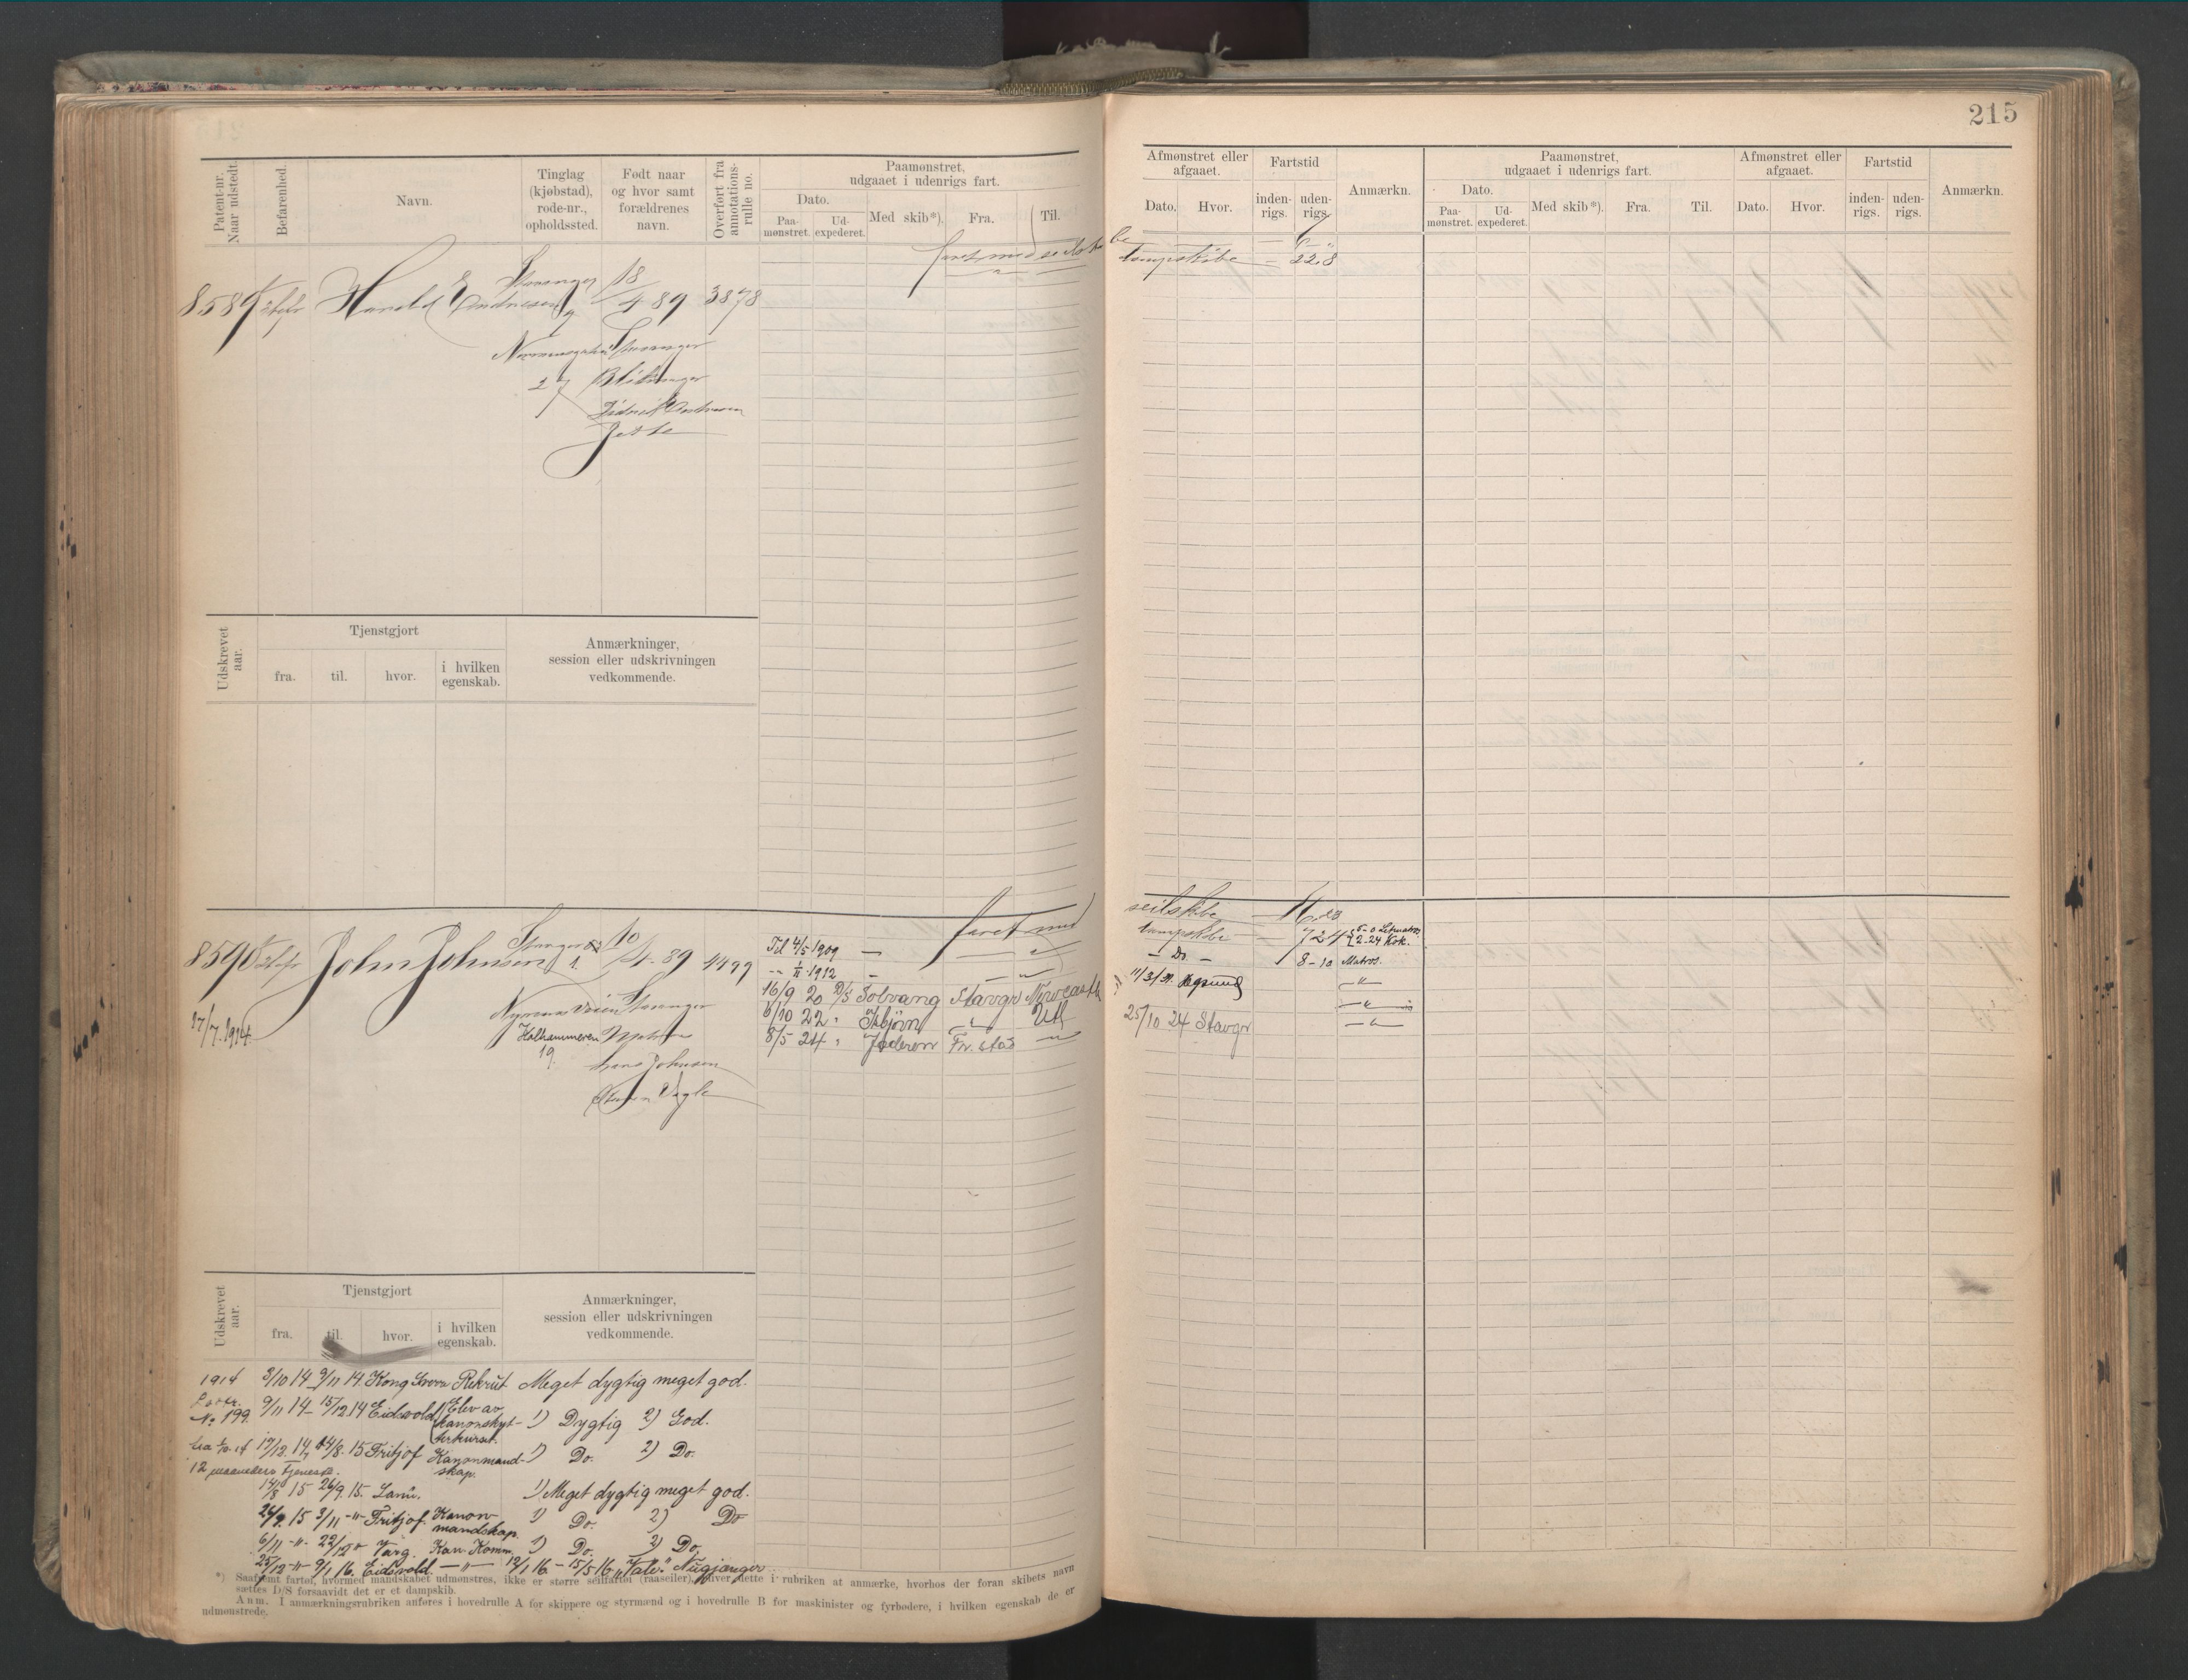 215
Patent-nr. Naar udstedt.
Befarenhed.
Navn.
Tinglag (kjøbstad), rode-nr., opholdssted.
Født naar og hvor samt forældrenes navn.
Overført fra annotations-rulle no.
Paamønstret, udgaaet i udenrigs fart.
Dato.
Paa-mønstret.
Ud-expederet.
Med skib*).
Fra.
Til.
Afmønstret eller afgaaet.
Dato.
Hvor.
Fartstid
inden-rigs.
uden-rigs.
Anmærkn.
Paamønstret, udgaaet i udenrigs fart.
Dato.
Paa-mønstret.
Ud-expederet.
Med skib*).
Fra.
Til.
Afmønstret eller afgaaet.
Dato.
Hvor.
Fartstid
inden-rigs.
uden-rigs.
Anmærkn.
faret med seilskibe
8589 Harald Andreasen Stavanger 18/4 89 3878
Stavanger
27
Jette
22.8
Udskrevet aar.
Tjenstgjort
fra.
til.
hvor.
i hvilken egenskab.
Anmærkninger, session eller udskrivningen vedkommende.
8590 John Johnsen 10/4-89 4499
faret med seilskibe
Til 4/5 1909 — 724 5-0 Letmatros 2-24 Kok.
1912 — Do — 8-10 Matros.
17/7.1914
16/9 20 Solvang Stavgr Newcastle
6/10 22 Isbjørn Utl
8/5 24 Jæderen Fr.stad
25/10 24 Stavgr
Kalhammeren 19.
Hans Johnsen
Udskrevet aar.
Tjenstgjort
fra.
til.
hvor.
i hvilken egenskab.
Anmærkninger, session eller udskrivningen vedkommende.
1914 3/10 14 9/11 14. Kong Sverre Rekrut Meget dygtig meget god.
No 199. 9/11 14- 15/12 14 Eidsvold Elev av kanonskytterkurset. 1) Dygtig 2) God.
14/8. 15 Fritjof Kanonmandskap. 1) Do. 2) Do.
12 maaneders tjeneste.
14/8 15 26/9. 15. 1) Meget dygtig meget god.
26/9. 15 3/11 -"- Fritjof. Kanonmandskap. 1) Do. 2) Do
6/11 -"- 22/12 Varg. Kan. Komm. 1) Do. 2) Do.
25/12 -"- 9/1 16. Eidsvold. -"- 12/1 16 - 15/5 16 „Vale"
*) Saafremt fartøi, hvormed mandskabet udmønstres, ikke er større seilfartøi (raaseiler), bliver dette i rubriken at anmærke, hvorhos der foran skibets navn
sættes D/S forsaavidt det er et dampskib.
Anm. I anmærkningsrubriken anføres i hovedrulle A for skippere og styrmænd og i hovedrulle B for maskinister og fyrbødere, i hvilken egenskab de er
udmønstrede.